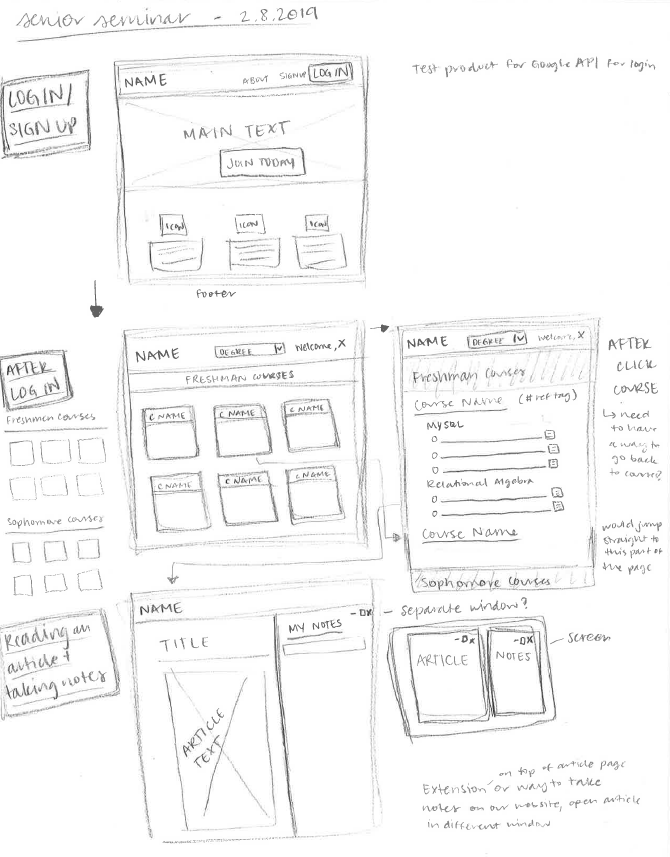 senior seminar - 2.8.2019
Test product for Google API for login
LOG IN/
SIGN UP
NAME
ABOUT SIGNUP LOG IN
MAIN TEXT
JOIN TODAY
ICON ICON ICON
footer
AFTER
LOG IN
Freshman courses
Sophomore courses
NAME DEGREE V Welcome, X
FRESHMAN COURSES
C NAME C NAME C NAME
C NAME C NAME C NAME
NAME DEGREE V Welcome, X
Freshman Courses
Course Name (#ref tag)
MySQL
Relational Algebra
Course Name
Sophomore courses
AFTER
CLICK
COURSE
↳ need
to have
a way to
go back
to courses?
would jump
straight to
this part of
the page
Reading an
article +
taking notes
NAME
TITLE
ARTICLE
TEXT
- □ x
MY NOTES
- separate window?
- □ x
ARTICLE
- □ x
NOTES
screen
on top of article page
Extension or way to take
notes on our website, open article
in different window